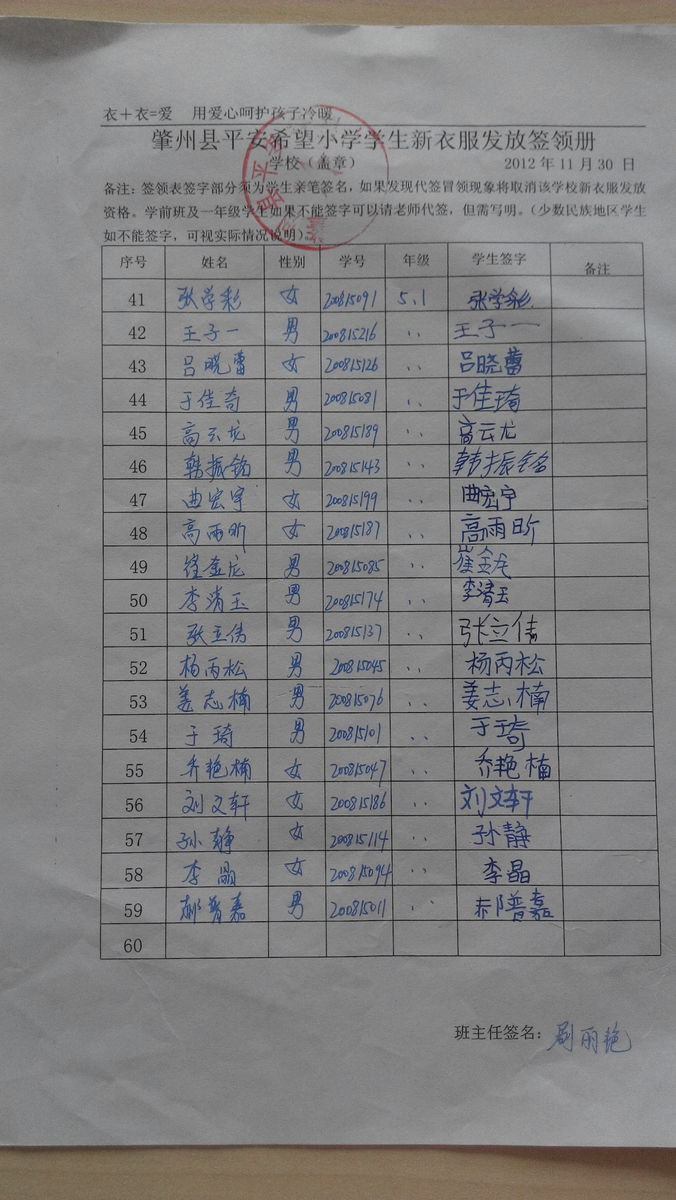 衣＋衣=爱 用爱心呵护孩子冷暖
肇州县平安希望小学学生新衣服发放签领册
学校（盖章） 2012 年 11 月 30 日
备注：签领表签字部分须为学生亲笔签名，如果发现代签冒领现象将取消该学校新衣服发放
资格。学前班及一年级学生如果不能签字可以请老师代签，但需写明。（少数民族地区学生
如不能签字，可视实际情况说明）。
序号 姓名 性别 学号 年级 学生签字 备注
41 张学彩 女 200815091 5.1 张学彩
42 王子一 男 200815216 .. 王子一
43 吕晓蕾 女 200815126 .. 吕晓蕾
44 于佳奇 男 200815081 .. 于佳琦
45 高云龙 男 200815189 .. 高云龙
46 韩振铭 男 200815143 .. 韩振铭
47 曲宏宇 女 200815199 .. 曲宏宇
48 高雨昕 女 200815187 .. 高雨昕
49 崔金龙 男 200815085 .. 崔金龙
50 李清玉 男 200815174 .. 李清玉
51 张立伟 男 200815137 .. 张立伟
52 杨丙松 男 200815045 .. 杨丙松
53 姜志楠 男 200815076 .. 姜志楠
54 于琦 男 200815101 .. 于琦
55 乔艳楠 女 200815047 .. 乔艳楠
56 刘文轩 女 200815186 .. 刘文轩
57 孙静 女 200815114 .. 孙静
58 李晶 女 200815094 .. 李晶
59 郝普嘉 男 200815011 .. 郝普嘉
60
班主任签名：丽艳